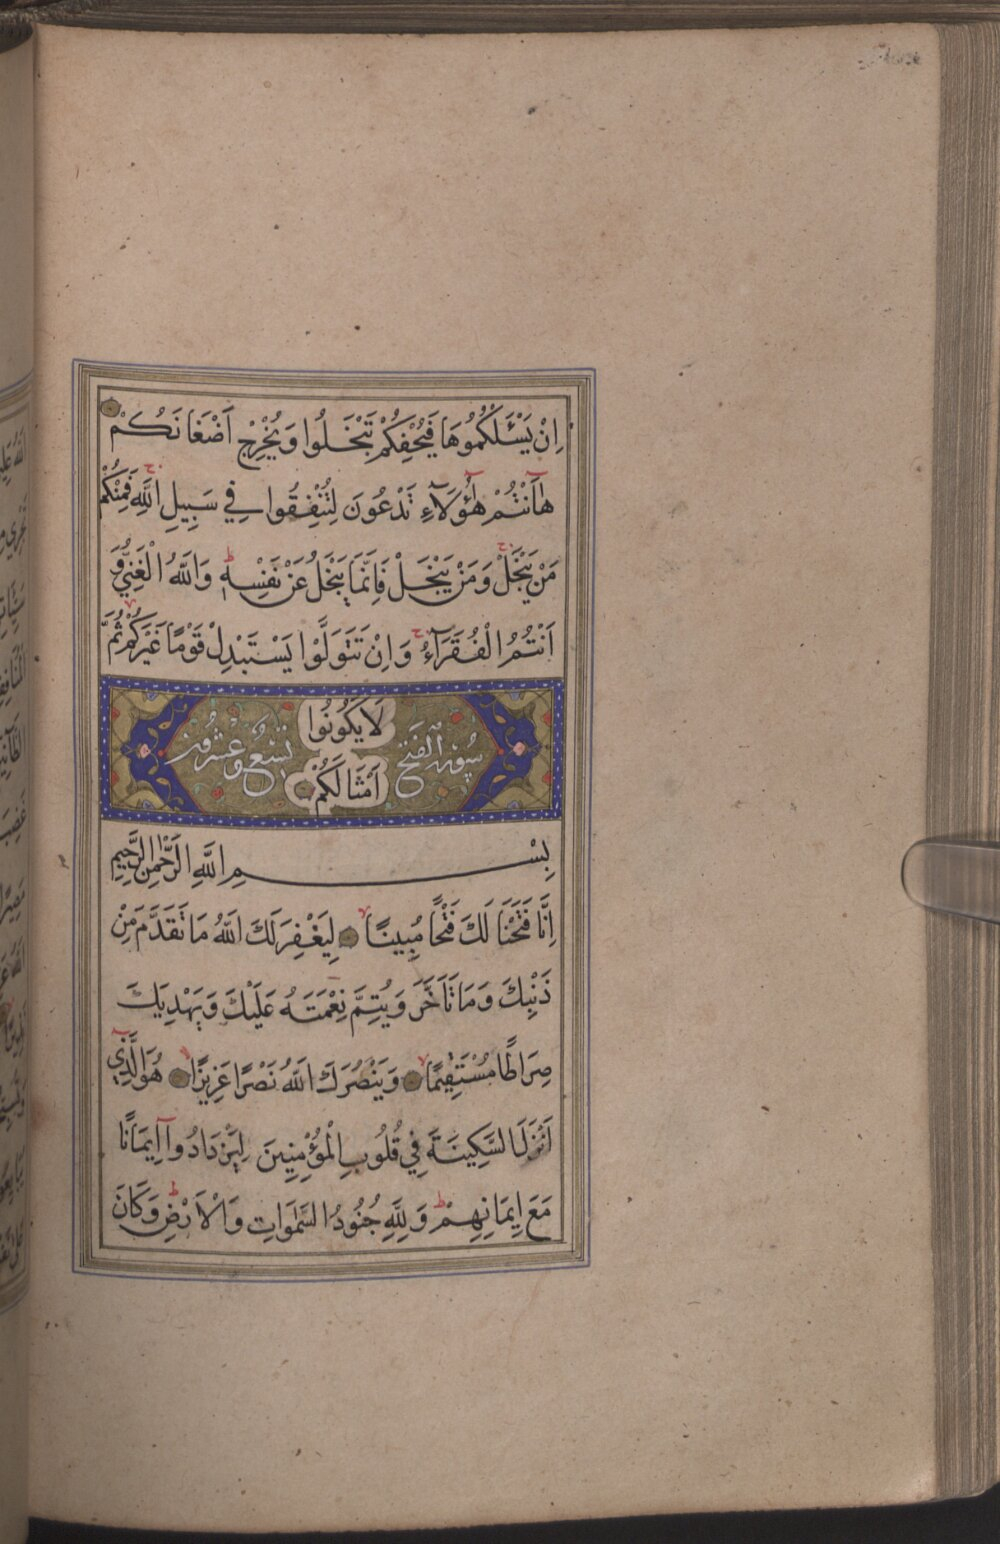 اِنْ يَسْـَٔلْكُمُوهَا فَيُحْفِكُمْ تَبْخَلُوا وَيُخْرِجْ اَضْغَانَكُمْ
هَٓااَنْتُمْ هٰٓؤُلَٓاءِ تُدْعَوْنَ لِتُنْفِقُوا فِي سَبِيلِ اللّٰهِ فَمِنْكُمْ
مَنْ يَبْخَلْ وَمَنْ يَبْخَلْ فَاِنَّمَا يَبْخَلُ عَنْ نَفْسِهِ وَاللّٰهُ الْغَنِيُّ وَ
اَنْتُمُ الْفُقَرَٓاءُ وَاِنْ تَتَوَلَّوْا يَسْتَبْدِلْ قَوْمًا غَيْرَكُمْ ثُمَّ
لَا يَكُونُوا
اَمْثَالَكُمْ
سورة الفتح تسع وعشرون
بِسْمِ اللّٰهِ الرَّحْمٰنِ الرَّحِيمِ
اِنَّا فَتَحْنَا لَكَ فَتْحًا مُبِينًا لِيَغْفِرَ لَكَ اللّٰهُ مَا تَقَدَّمَ مِنْ
ذَنْبِكَ وَمَا تَاَخَّرَ وَيُتِمَّ نِعْمَتَهُ عَلَيْكَ وَيَهْدِيَكَ
صِرَاطًا مُسْتَقِيمًا وَيَنْصُرَكَ اللّٰهُ نَصْرًا عَزِيزًا هُوَ الَّذِٓي
اَنْزَلَ السَّكِينَةَ فِي قُلُوبِ الْمُؤْمِنِينَ لِيَزْدَادُٓوا اِيمَانًا
مَعَ اِيمَانِهِمْ وَلِلّٰهِ جُنُودُ السَّمٰوَاتِ وَالْاَرْضِ وَكَانَ